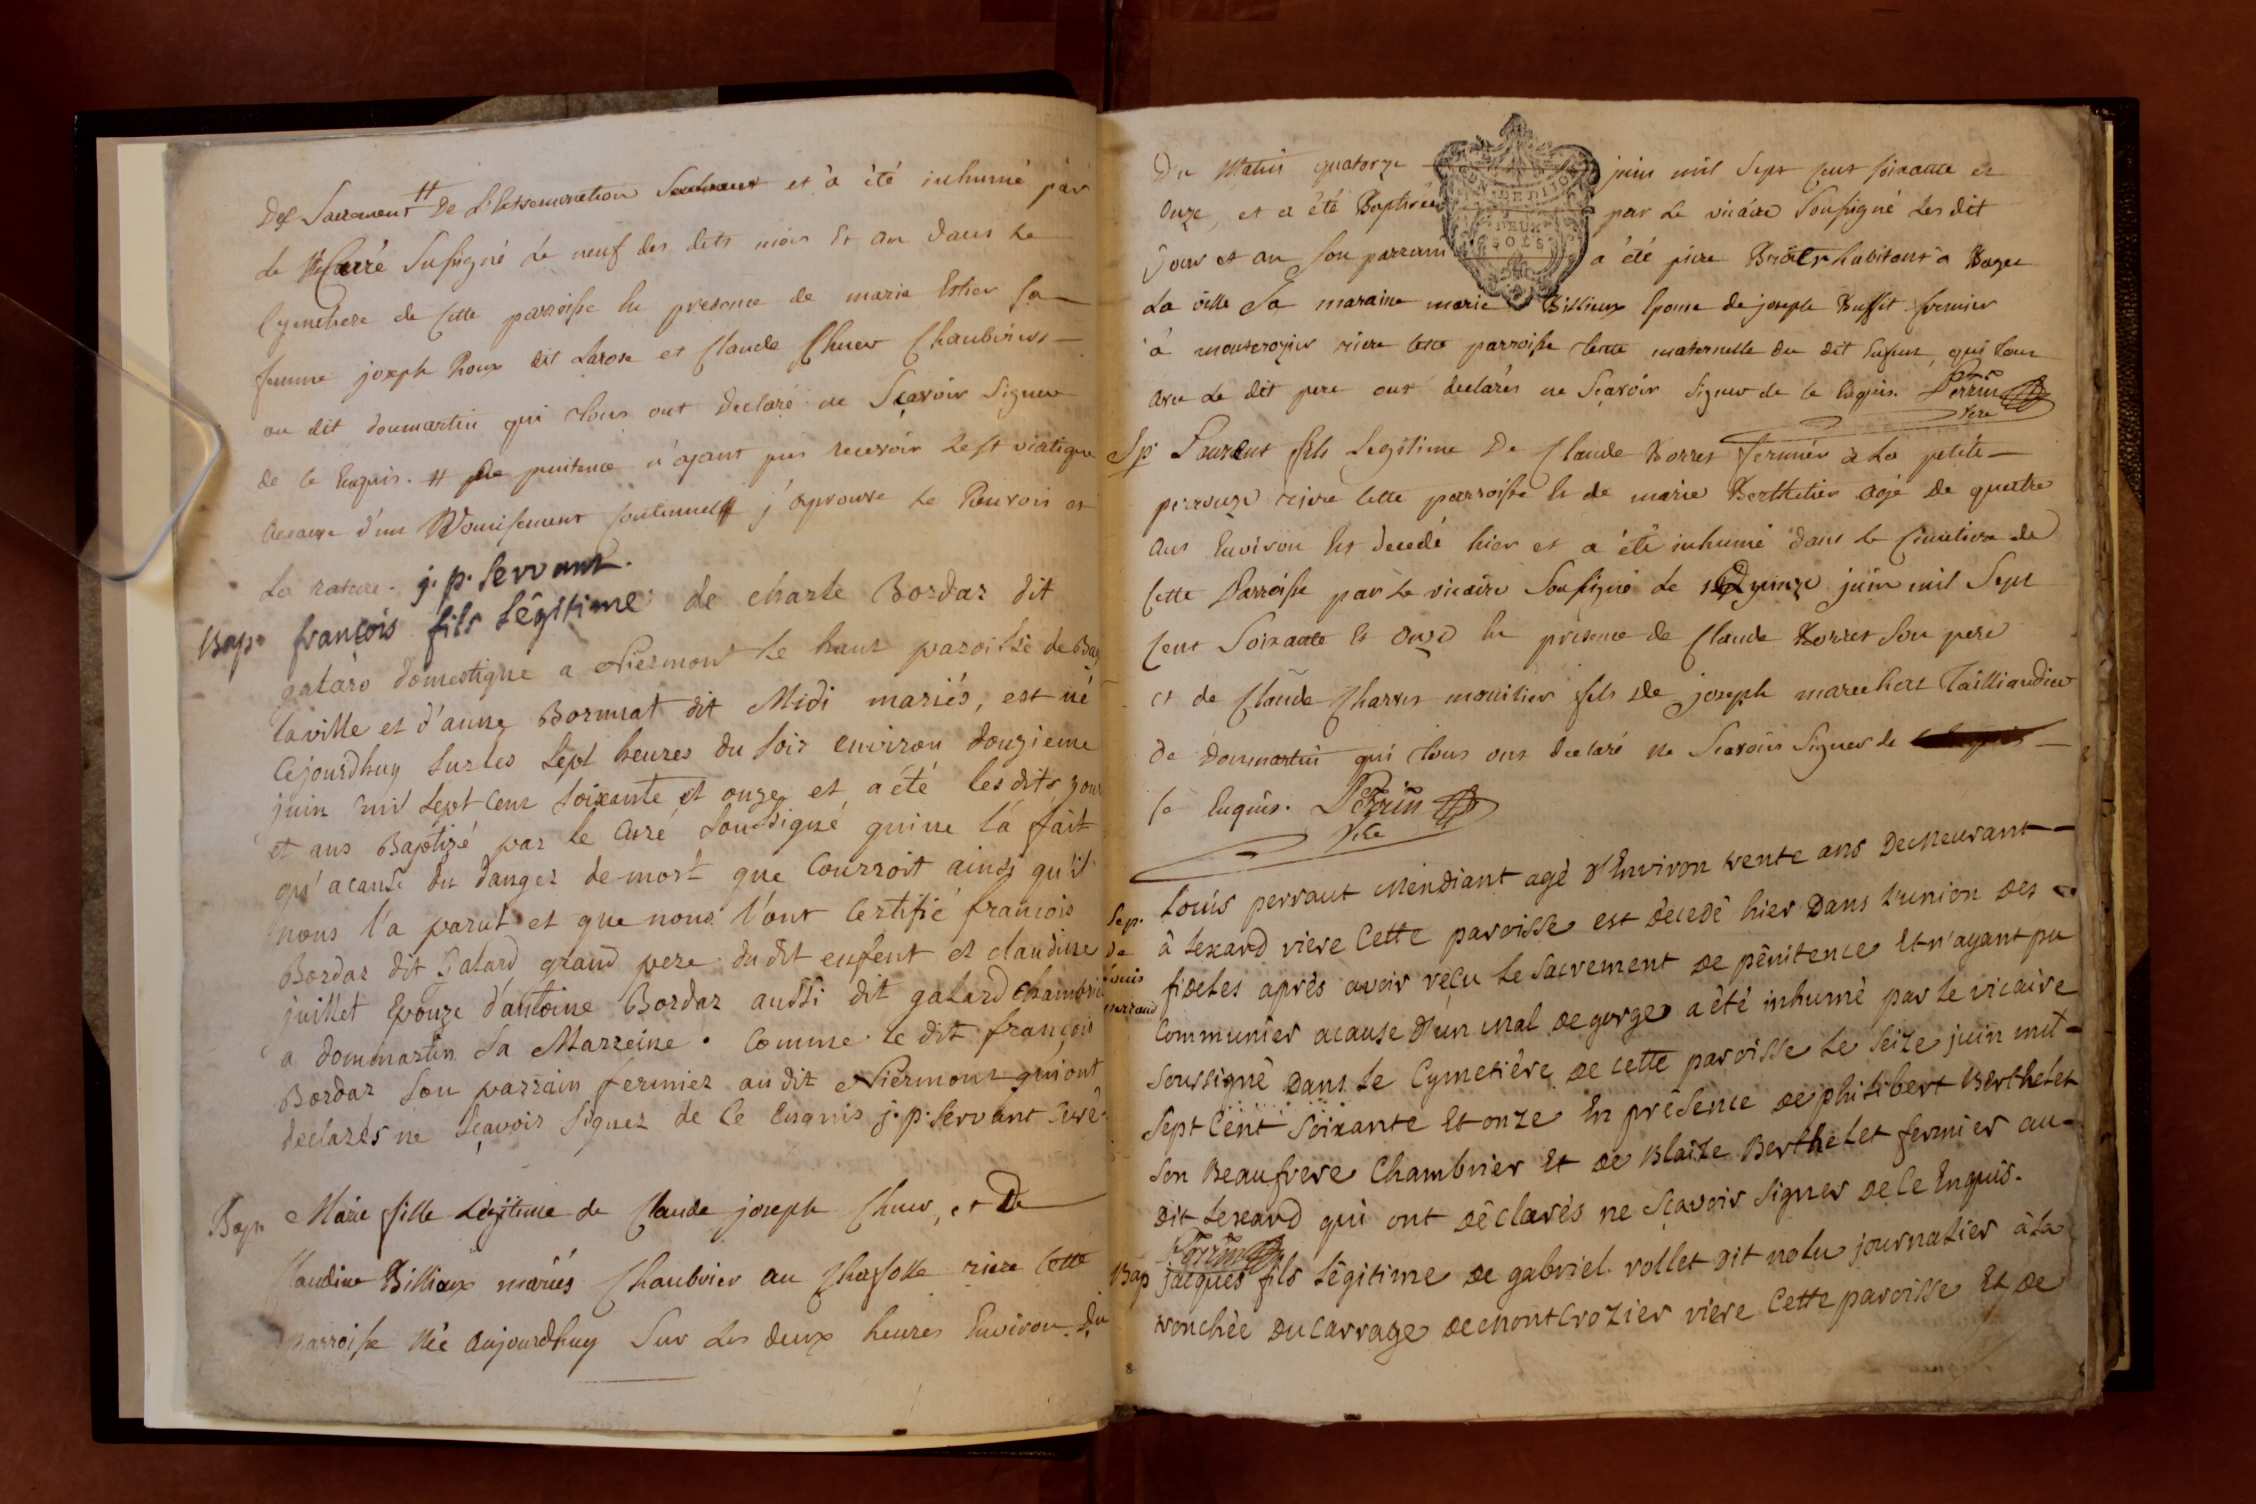 Des Sacrement # De L'Extremonction Seulement et a été inhumé par
le Curé Susigné le neuf des dits mois Et an dans le
Cymethere de Cette parroisse En presence de marie Estier sa
femme joseph Roux dit Larose et Claude Chuer Chaubriers
au dit dommartin qui tous ont declaré ne Sçavoir Signer
de ce Enquis. # de penitence n'ayant pus recevoir le st viatique
acause d'un Vomissement continuel j'aprouve le Renvois et
La rature. j. p. Servant.
Bap. françois fils légitime de charle Bordar dit
galard domestique a Niermont le haut paroisse de Bag
la ville et d'anne Bormat dit Midi mariés, est né
Cejourdhuy sur les sept heures du soir environ douzieme
juin mil sept cent soixante et onze, et a été les dits jour
et ans Baptizé par le Curé soussigné qui ne l'a fait
qu'acause du danger de mort que Courroit ainsi qu'il
nous l'a parut et que nous l'ont Certifié françois
Bordar dit Galard grand pere du dit enfent et claudine
juillet Epouze d'antoine Bordar aussi dit galard Chambrier
a dommartin Sa Marreine. Comme le dit françois
Bordar Son parrain fermier au dit Niermont qui ont
declarés ne sçavoir signer de Ce Enquis j. p. Servant Curé
Bap. Marie fille Légitime de Claude joseph Chuer, et De
Claudine Billioux mariés Chaubrier au riere Cette
parroisse Née aujourdhuy Sur Les deux heures Environ du
Du Matin quatorze juin mil Sept cent soixante et
Onze, et a été Baptisée par Le vicaire Sousigné Les dit
Jour et an Son parrain a été piere habitant à Bagé
La ville Sa maraine marie Billioux Epouse de joseph Buffet fermier
à montcrozier riere cette parroisse tente maternelle du dit Enfent, qui tous
avec Le dit pere ont declarés ne Sçavoir Signer de ce Enquis. Perrin
Vicre
Sp. Laurent fils Legitime De Claude Borret fermier à La petite
perrouze riere Cette parroisse Et de marie Berthelier agé De quatre
ans Environ Est decedé hier et a été inhumé dans Le Cimetiere de
Cette Parroisse par Le vicaire Sousigné Le Quinze juin mil Sept
Cent Soixante Et Onze En présence de Claude Borret Son pere
et de Claude Charvet fils de joseph marechal Tailliandier
De Dommartin qui tous ont declaré ne Scavoir Signer de
Ce Enquis. Perrin
Vice
Sep. de louis perraud
Louis perraut Mendiant agé d'Environ trente ans Demeurant
à Lexard riere Cette paroisse est décedé hier Dans L'union Des
fideles après avoir reçu le Sacrement De pénitence Et n'ayant pu
Communier acause d'un mal de gorge a été inhumé par Le vicaire
Soussigné Dans Le Cymetière de cette paroisse Le Seize juin mil
Sept Cent Soixante Et onze En présence De philibert Berthelet
Son Beaufrere Chambrier Et De Blaize Berthelet fermier au
Dit Lexard qui ont déclarés ne Sçavoir Signer de Ce Enquis.
Perrin
Bap jacques fils Légitime de gabriel rollet dit nolu journalier à La
tronchée Du Carrage de MontCrozier riere Cette paroisse Et De